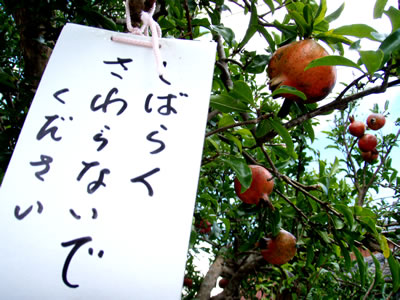 しばらく
さわらないで
ください